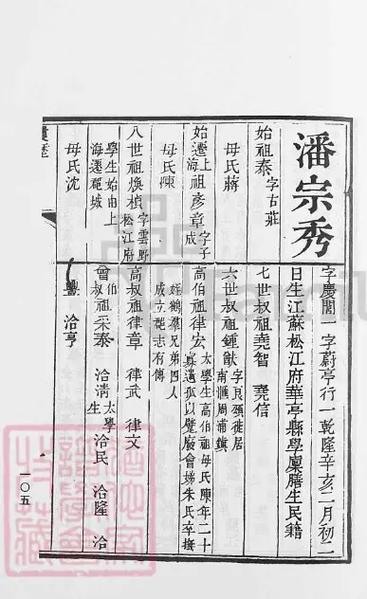 潘宗秀
字慶閣一字蔚亭行一乾隆辛亥二月初二
日生江蘇松江府華亭縣學廩膳生民籍
始祖泰 字古莊
七世叔祖堯智 堯信
母氏蔣
六世叔祖鍾猷 字良弼徙居
南滙周浦鎮
始遷上海祖彥章 字子成
高伯祖律宏 太學生高伯祖母氏陳年二十
寡遺孤以甓廠會娣朱氏卒撫
母氏陳
姪鶴羣兄弟四人
成立邑志有傳
八世祖煥楨 字雲野松江府
學生始由上
海遷龍坡
高叔祖律章 律武 律文
曾伯叔祖采泰 洽清 太學生 洽民 洽隆 洽
母氏沈
洽亨
履歷
一〇五